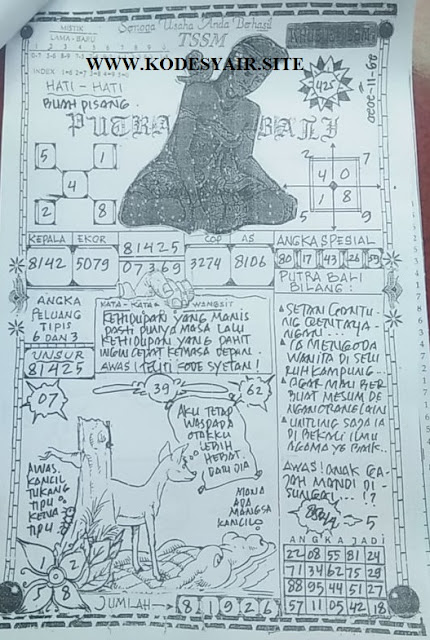 MISTIK
LAMA - BARU
Semoga Usaha Anda Berhasil
TSSM
WWW.KODESYAIR.SITE
INDEX
HATI - HATI
BUAH PISANG
425
29-11-2020
PUTRA BALI
5 1
4
2 8
2 7
4 0
1 8
5 9
KEPALA EKOR
8142 5079
81425
07369
COP AS
3274 8106
ANGKA SPESIAL
80 17 43 26 59
PUTRA BALI
BILANG :
ANGKA
PELUANG
TIPIS
6 DAN 3
UNSUR
81425
KATA - KATA WANGSIT
KEHIDUPAN YANG MANIS
PASTI PUNYA MASA LALU
KEHIDUPAN YANG PAHIT
INGIN CEPAT KEMASA DEPAN.
AWAS ! TELITI CODE SYETAN !
SETAN GANTU-
NG GENTAYA-
NGAN...
IA MENGODA
WANITA DI SELU
RUH KAMPUNG...
AGAR MAU BER
BUAT MESUM DE
NGAN ORANG LAIN
UNTUNG SAJA IA
DI BEKALI ILMU
AGAMA YG BAIK..
07
39
62
AKU TETAP
WASPADA
OTAKKU
LEBIH
HEBAT
DARI DIA
AWAS.
KANCIL
TUKANG
TIPU
KETUA
TIPU
MANA
ADA
MANGSA
KANCIL
AWAS! ANAK GA-
JAH MANDI DI
SUNGAI... !?
5
5 2
8
ANGKA JADI
22 08 55 81 24
71 34 62 75 29
88 95 44 51 27
57 11 05 42 18
JUMLAH → 8 1 9 2 6